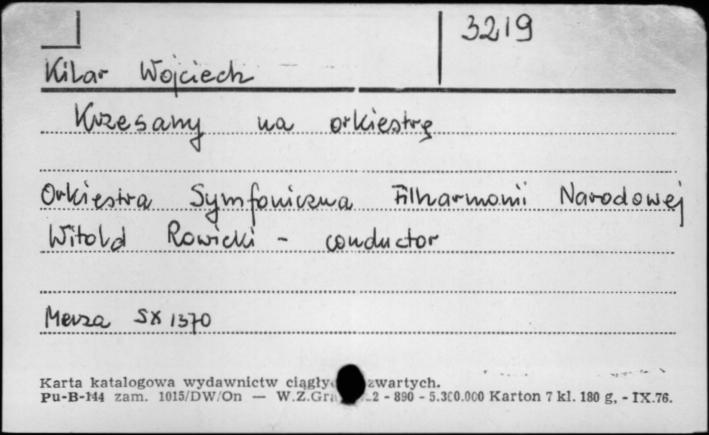 3219
Kilar Wojciech
Krzesany na orkiestrę
Orkiestra Symfoniczna Filharmonii Narodowej
Witold Rowicki - conductor
Muza SX 1370
Karta katalogowa wydawnictw zwartych.
Pu-B-144 zam. 1015/DW/On — W.Z.Gra 2 - 890 - 5.300.000 Karton 7 kl. 180 g. - IX.76.